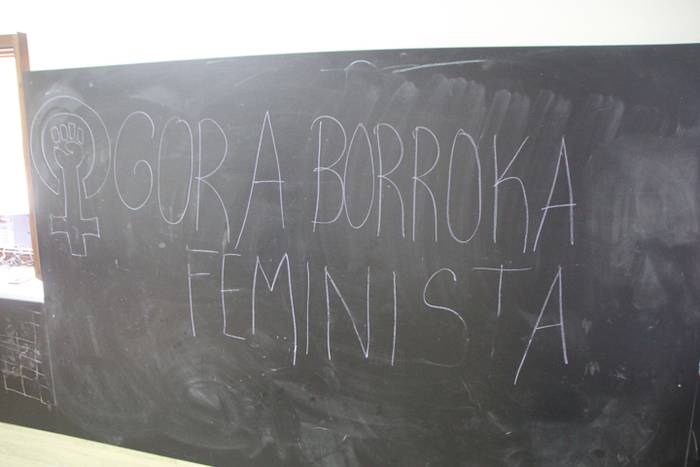 GORA BORROKA
FEMINISTA